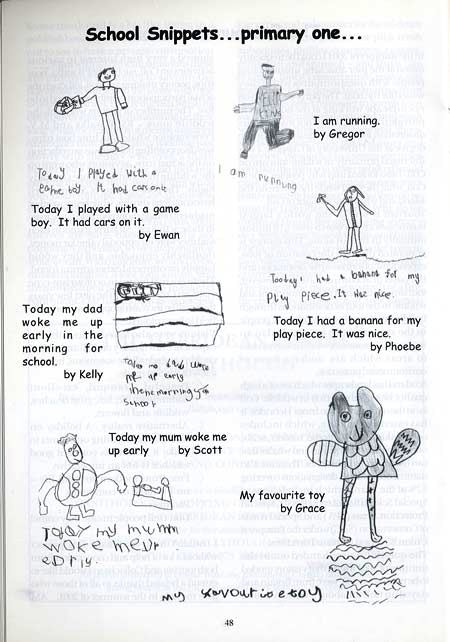 School Snippets...primary one...
I am running.
by Gregor
Today I Played with a
Game boy. It had cars on it
I am running
Today I played with a game
boy. It had cars on it.
by Ewan
Today I had a banana for my
Play piece. It was nice.
Today my dad
woke me up
early in the
morning for
school.
by Kelly
Today I had a banana for my
play piece. It was nice.
by Phoebe
me up early
in the morning for
school
Today my mum woke me
up early by Scott
My favourite toy
by Grace
TODAY my mum
woke me up
early.
my favourite toy
48